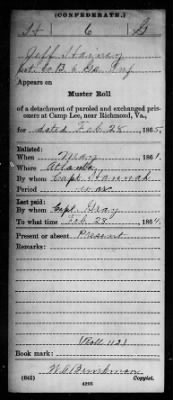 (CONFEDERATE.)
St 6 Ga
Jeff
Pvt. Co. B. 6 Ga. Inf.
Appears on
Muster Roll
of a detachment of paroled and exchanged pris-
oners at Camp Lee, near Richmond, Va.,
for dated Feb. 28, 1865.
Enlisted:
When May, 1861.
Where Atlanta
By whom Capt. Hannah
Period war
Last paid:
By whom Capt. Gray
To what time Feb. 28, 1864.
Present or absent Present
Remarks:
Roll 1121
Book mark:
W. A. Brinkman
(642) Copyist.